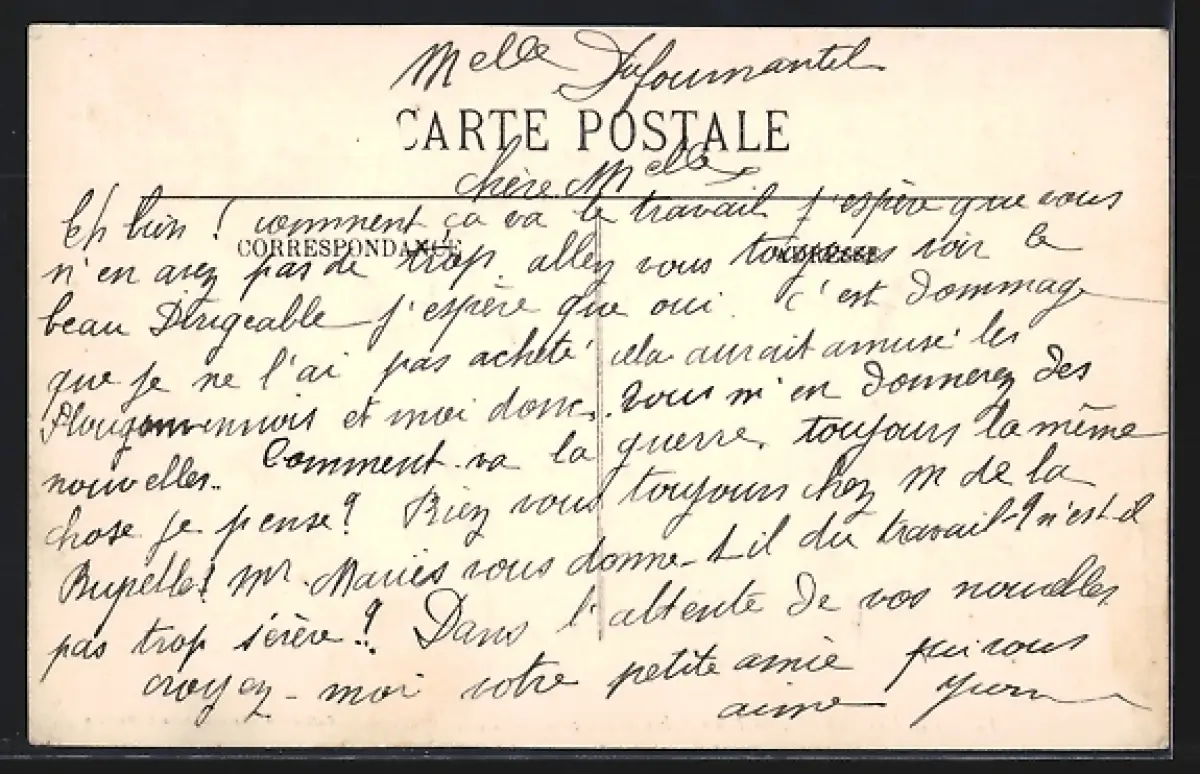 Melle Dufourmantel
CARTE POSTALE
chère Melle
Eh bien ! comment ça va le travail j'espère que vous
CORRESPONDANCE
n'en avez pas de trop. allez vous toujours voir le
beau Dirigeable j'espère que oui. c'est dommage
que je ne l'ai pas acheté cela aurait amusé les
et moi donc. vous m'en donnerez des
nouvelles.. Comment va la guerre, toujours la même
chose je pense? Riez vous toujours chez M de la
Rupelle! Mr. Mariés vous donne-t-il du travail? n'est-il
pas trop sévère..? Dans l'attente de vos nouvelles
croyez-moi votre petite amie qui vous
aime